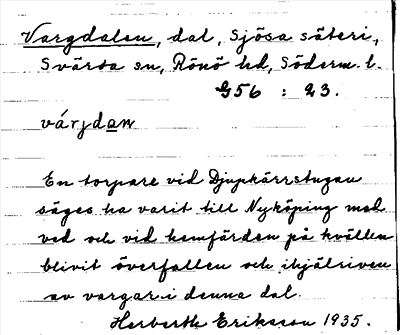 Vargdalen, dal, Sjösa säteri,
Svärta sn, Rönö hd, Söderm. l.
G56 : 23.
várjdan
En torpare vid Djupkärrstugan
säges ha varit till Nyköping med
ved och vid hemfärden på kvällen
blivit överfallen och ihjälriven
av vargar i denna dal.
Herberth Eriksson 1935.